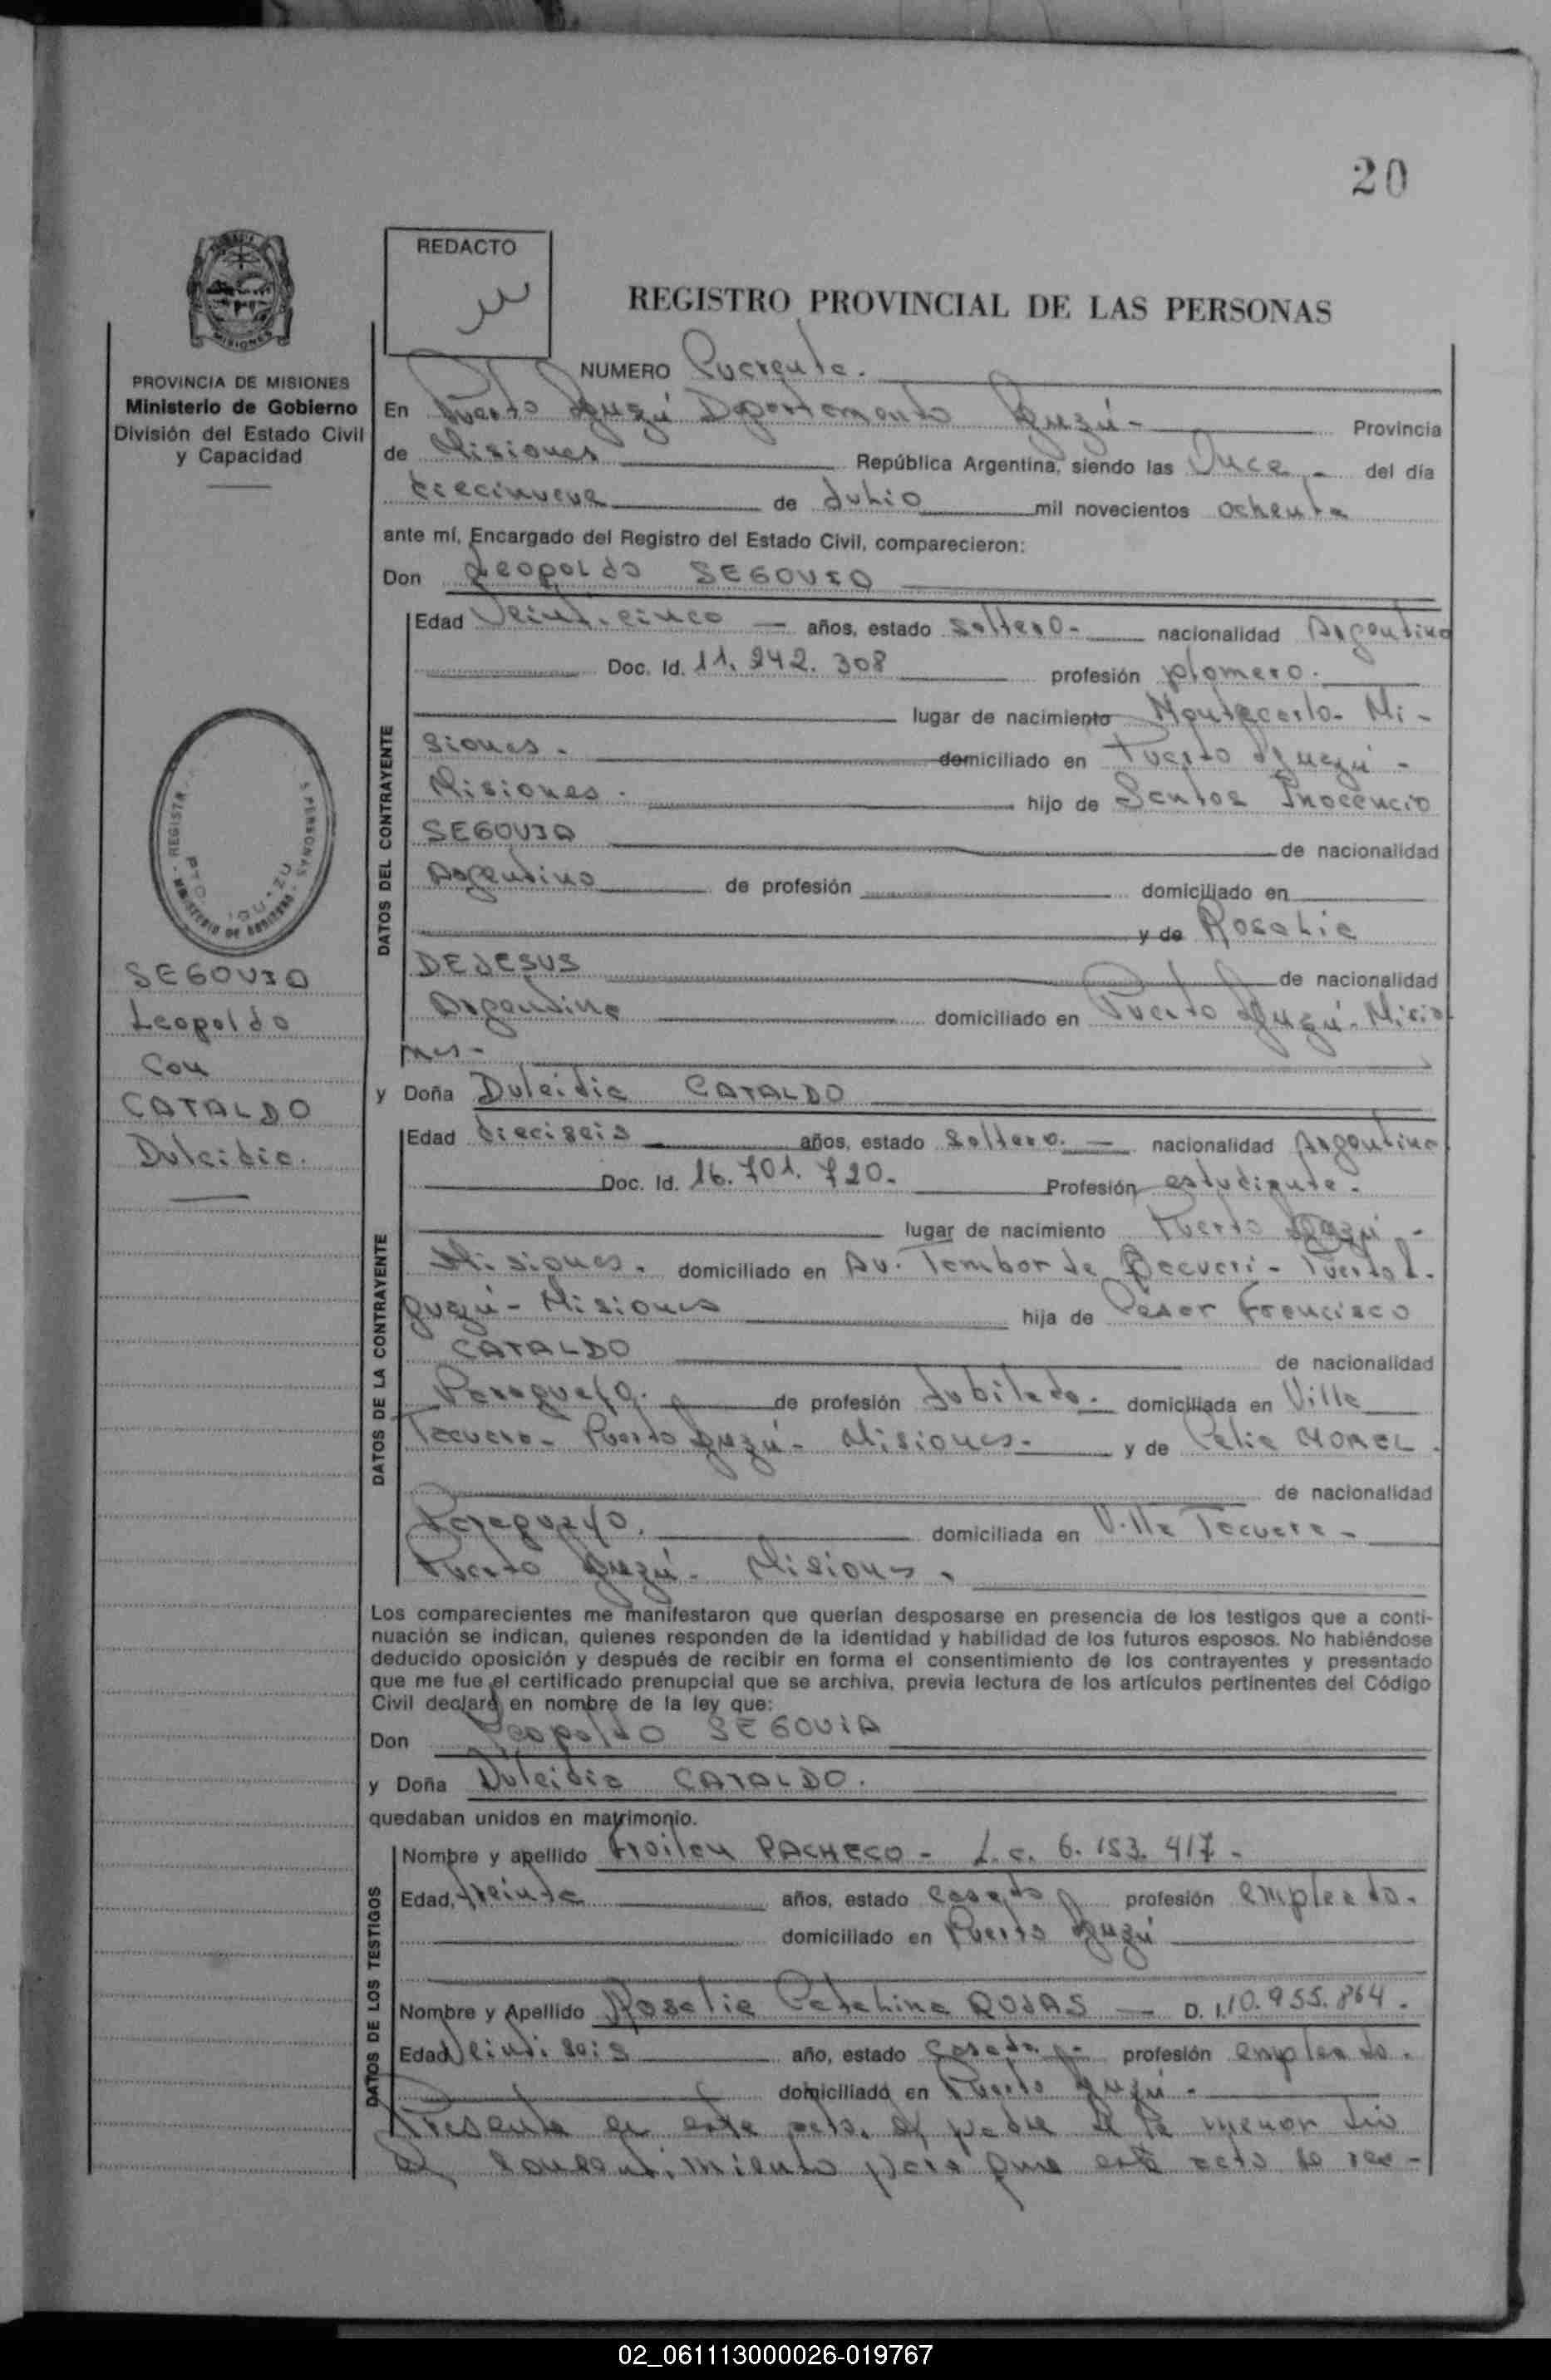 20
REDACTO
REGISTRO PROVINCIAL DE LAS PERSONAS
PROVINCIA DE MISIONES
Ministerio de Gobierno
División del Estado Civil
y Capacidad
NUMERO Cuarenta.
En Puerto Iguazú Departamento Iguazú - Provincia
de Misiones República Argentina, siendo las Once - del día
diecinueve de Julio mil novecientos ochenta
ante mí, Encargado del Registro del Estado Civil, comparecieron:
Don Leopoldo SEGOVIA
DATOS DEL CONTRAYENTE
Edad Veinticinco - años, estado soltero - nacionalidad Argentina
Doc. Id. 11.242.308 profesión plomero.
lugar de nacimiento Montecarlo - Mi-
siones. domiciliado en Puerto Iguazú -
Misiones. hijo de Santos Inocencio
SEGOVIA de nacionalidad
Argentina de profesión domiciliado en
y de Rosalia
DEJESUS de nacionalidad
Argentina domiciliado en Puerto Iguazú - Misio
nes -
SEGOVIA
Leopoldo
Con
CATALDO
Dulcidia.
y Doña Dulcidia CATALDO
DATOS DE LA CONTRAYENTE
Edad dieciseis años, estado soltera. - nacionalidad Argentina
Doc. Id. 16.701.720. Profesión estudiante.
lugar de nacimiento Puerto Iguazú -
Misiones. domiciliado en Av. Tambor de Tacuari - Puerto I.
guazú - Misiones hija de Cesar Francisco
CATALDO de nacionalidad
Paraguaya. de profesión Jubilado. domiciliada en Villa
Tacuara - Puerto Iguazú - Misiones. y de Celia MOREL.
de nacionalidad
Paraguayo. domiciliada en Villa Tacuara -
Puerto Iguazú - Misiones.
Los comparecientes me manifestaron que querían desposarse en presencia de los testigos que a conti-
nuación se indican, quienes responden de la identidad y habilidad de los futuros esposos. No habiéndose
deducido oposición y después de recibir en forma el consentimiento de los contrayentes y presentado
que me fue el certificado prenupcial que se archiva, previa lectura de los artículos pertinentes del Código
Civil declaré en nombre de la ley que:
Don Leopoldo SEGOVIA
y Doña Dulcidia CATALDO.
quedaban unidos en matrimonio.
DATOS DE LOS TESTIGOS
Nombre y apellido Froilan PACHECO - L.c. 6.153.417 -
Edad, treinta años, estado casado profesión empleado.
domiciliado en Puerto Iguazú
Nombre y Apellido Rosalia Catalina ROJAS - D. I. 10.955.864.
Edad Veintiseis año, estado casada - profesión empleado.
domiciliado en Puerto Iguazú -
Presente en este acto, el padre de la menor dio
el consentimiento para que este acto se rea-
02_061113000026-019767